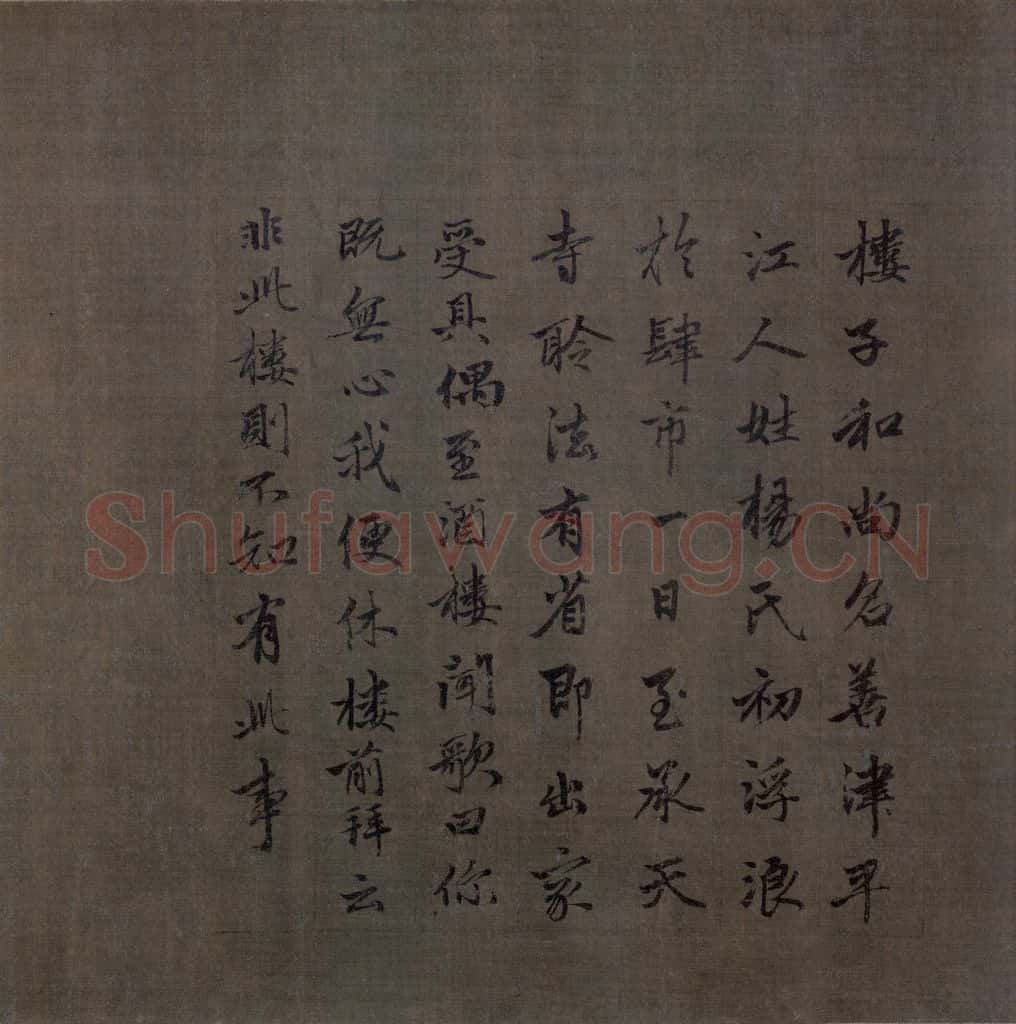 樓子和尚名善津早
江人姓楊氏初浮浪
於肆市一日至承天
寺聆法有省即出家
受具偶至酒樓聞歌曰你
既無心我便休樓前拜云
非此樓則不知有此事
Shufawang.CN